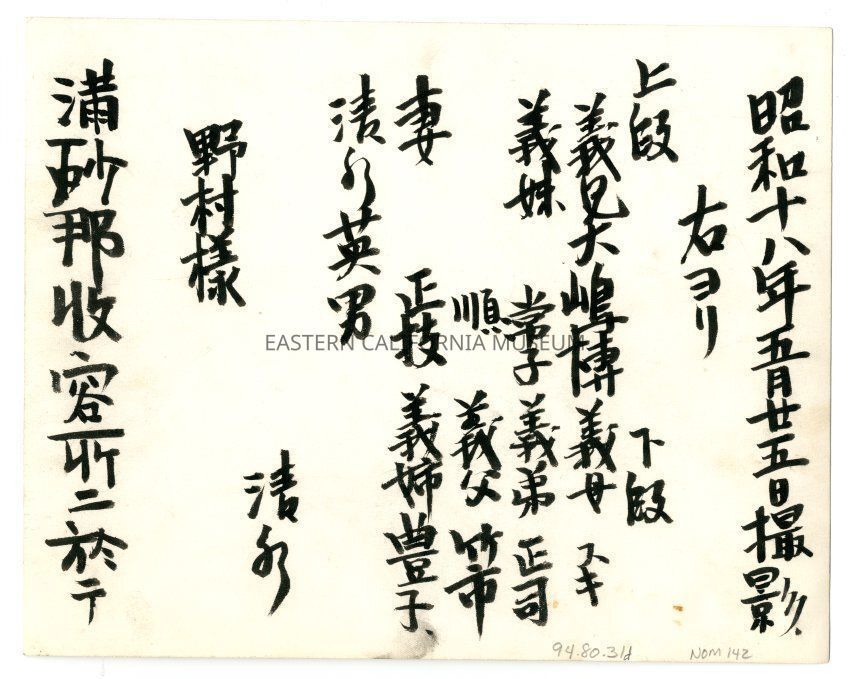 昭和十八年五月廿五日撮影.
右ヨリ
上段 下段
義兄大嶋博 義母 スキ
義妹 常子 義弟 正司
順 義父 竹市
妻 正枝 義姉 豊子、
清水英男
清水
野村様
満砂那收容所ニ於テ
EASTERN CALIFORNIA MUSEUM
94.80.31d NOM 142